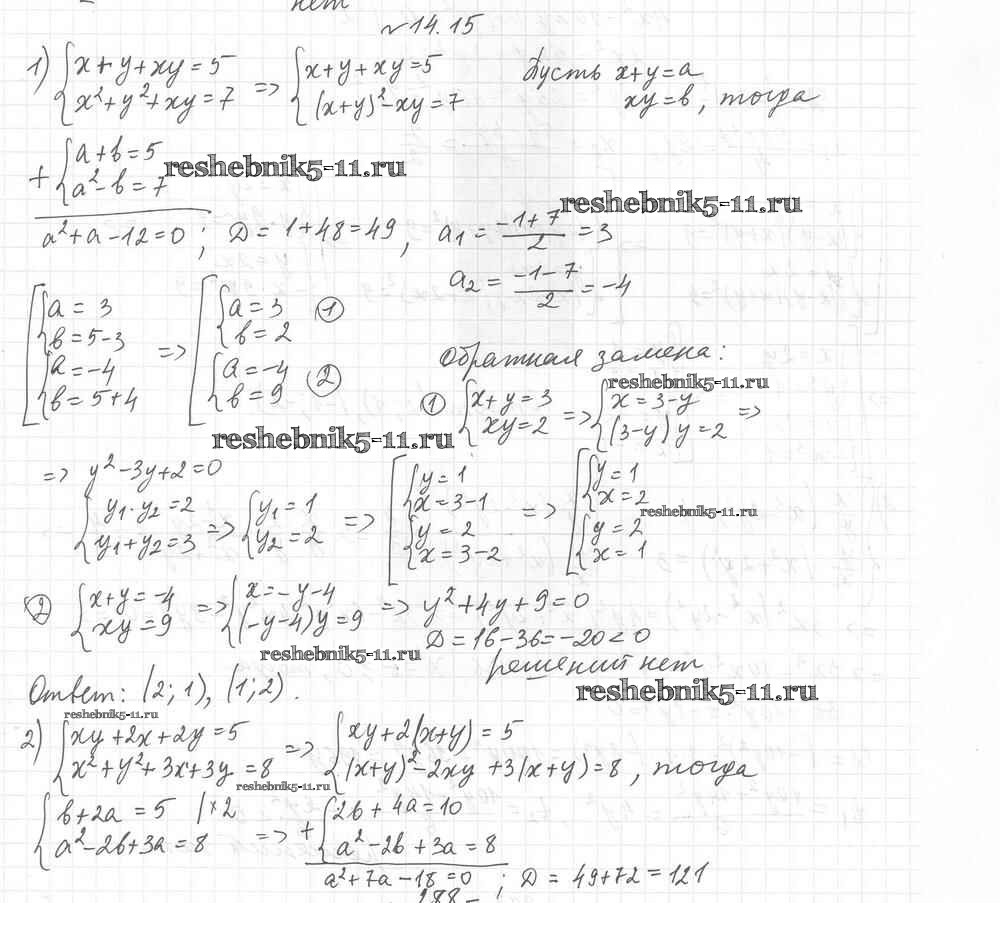 нет
№14.15
1) { x+y+xy=5 ; x²+y²+xy=7 => { x+y+xy=5 ; (x+y)²-xy=7 Пусть x+y=a
xy=в, тогда
+ { a+в=5 ; a²-в=7
reshebnik5-11.ru
reshebnik5-11.ru
a²+a-12=0; Д=1+48=49, a₁= (-1+7)/2 =3
a₂= (-1-7)/2 =-4
[ { a=3 ; в=5-3 { a=-4 ; в=5+4 => [ { a=3 ; в=2 ① { a=-4 ; в=9 ②
Обратная замена:
reshebnik5-11.ru
① { x+y=3 ; xy=2 => { x=3-y ; (3-y)y=2 =>
reshebnik5-11.ru
=> y²-3y+2=0
{ y₁·y₂=2 ; y₁+y₂=3 => { y₁=1 ; y₂=2 => [ { y=1 ; x=3-1 { y=2 ; x=3-2 => [ { y=1 ; x=2 { y=2 ; x=1
reshebnik5-11.ru
② { x+y=-4 ; xy=9 => { x=-y-4 ; (-y-4)y=9 => y²+4y+9=0
Д=16-36=-20<0
reshebnik5-11.ru
решений нет
reshebnik5-11.ru
Ответ: (2;1), (1;2).
reshebnik5-11.ru
2) { xy+2x+2y=5 ; x²+y²+3x+3y=8 => { xy+2(x+y)=5 ; (x+y)²-2xy+3(x+y)=8, тогда
reshebnik5-11.ru
{ в+2a=5 |×2 ; a²-2в+3a=8 => + { 2в+4a=10 ; a²-2в+3a=8
a²+7a-18=0; Д=49+72=121